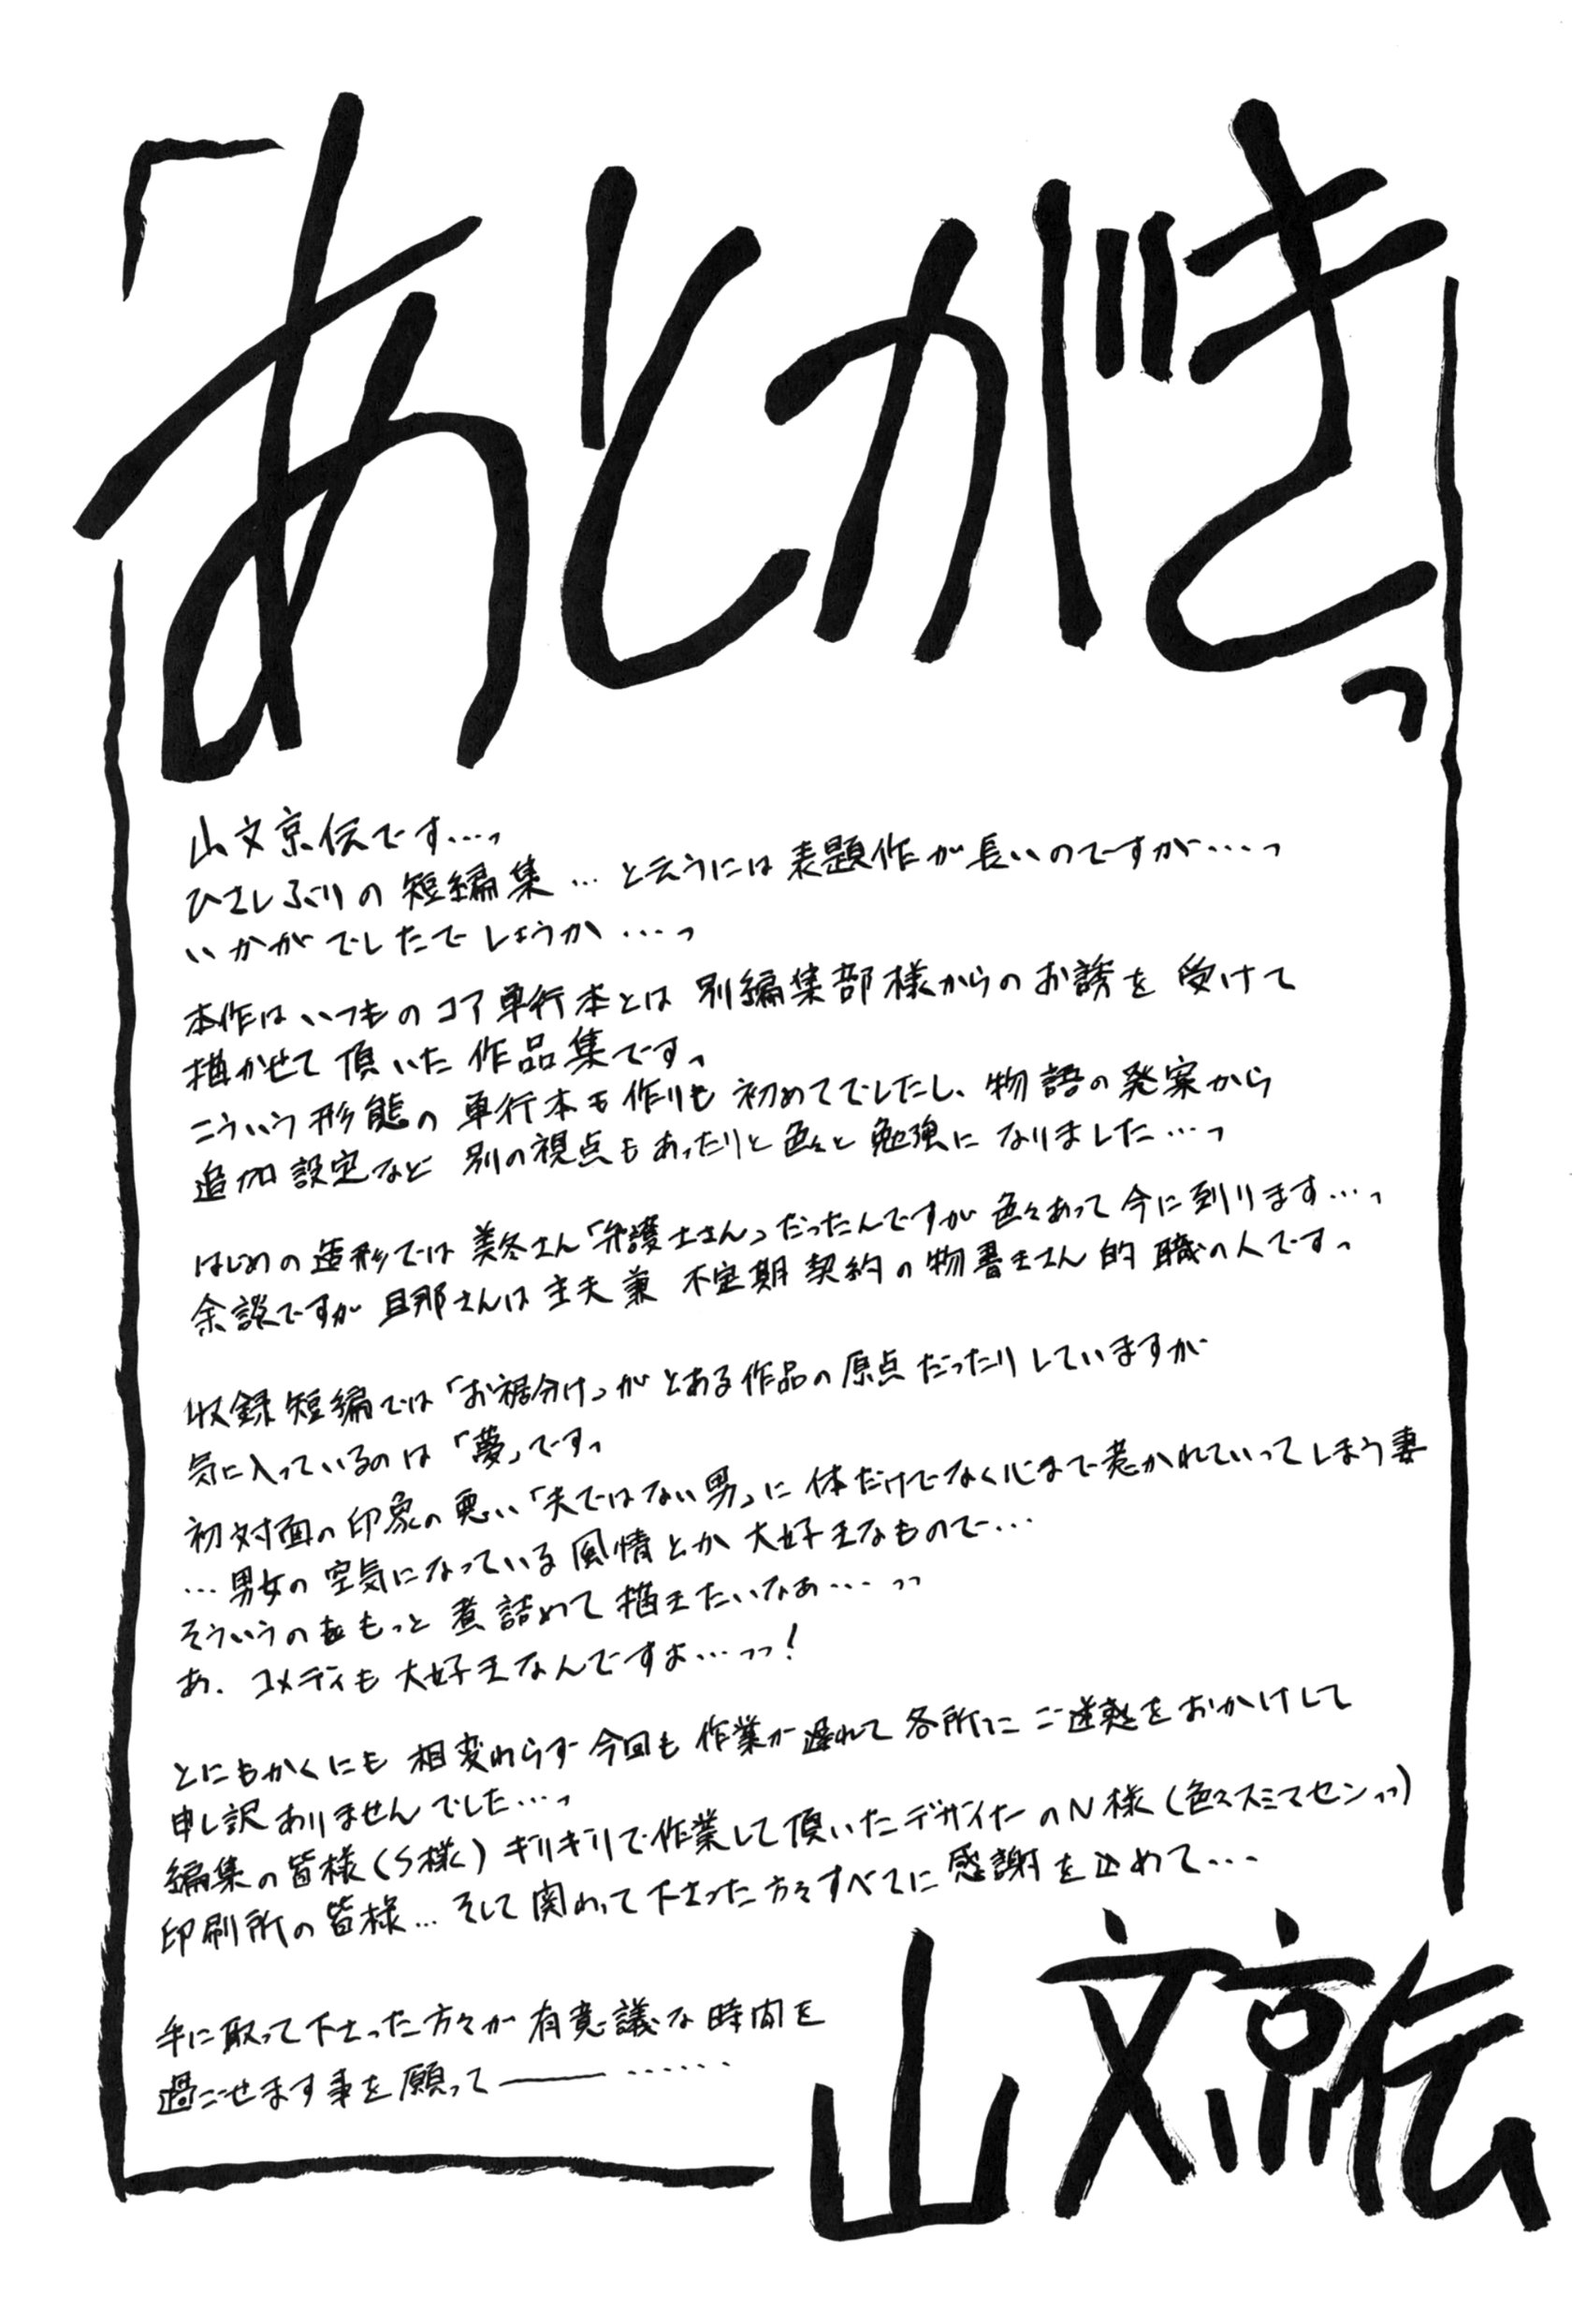 「あとがきっ
山文京伝です…っ
ひさしぶりの短編集…と云うには表題作が長いのですが…っ
いかがでしたでしょうか…っ
本作はいつものコア単行本とは別編集部様からのお誘を受けて
描かせて頂いた作品集ですっ
こういう形態の単行本も作りも初めてでしたし、物語の発案から
追加設定など別の視点もあったりと色々と勉強になりました…っ
はじめの造形では美冬さん「弁護士さん」だったんですが色々あって今に到ります…っ
余談ですが旦那さんは主夫兼不定期契約の物書きさん的職の人ですっ
収録短編では「お裾分け」がとある作品の原点だったりしていますが
気に入っているのは「夢」ですっ
初対面の印象の悪い「夫ではない男」に体だけでなく心まで惹かれていってしまう妻
…男女の空気になっている風情とか大好きなもので…
そういうのをもっと煮詰めて描きたいなぁ…っっ
あ、コメディも大好きなんですよ…っっ！
とにもかくにも相変わらず今回も作業が遅れて各所にご迷惑をおかけして
申し訳ありませんでした…っ
編集の皆様（S様）ギリギリで作業して頂いたデザイナーのN様（色々スミマセンっっ）
印刷所の皆様…そして関わって下さった方々すべてに感謝を込めて…
手に取って下さった方々が有意議な時間を
過ごせます事を願って――……
山文京伝